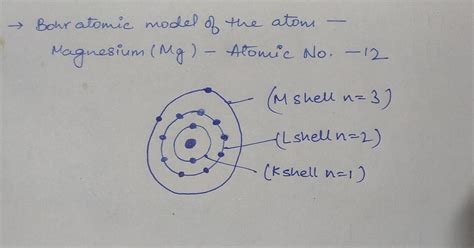 → Bohr atomic model of the atom —
Magnesium (Mg) - Atomic No. -12
(M shell n=3)
(L shell n=2)
(K shell n=1)